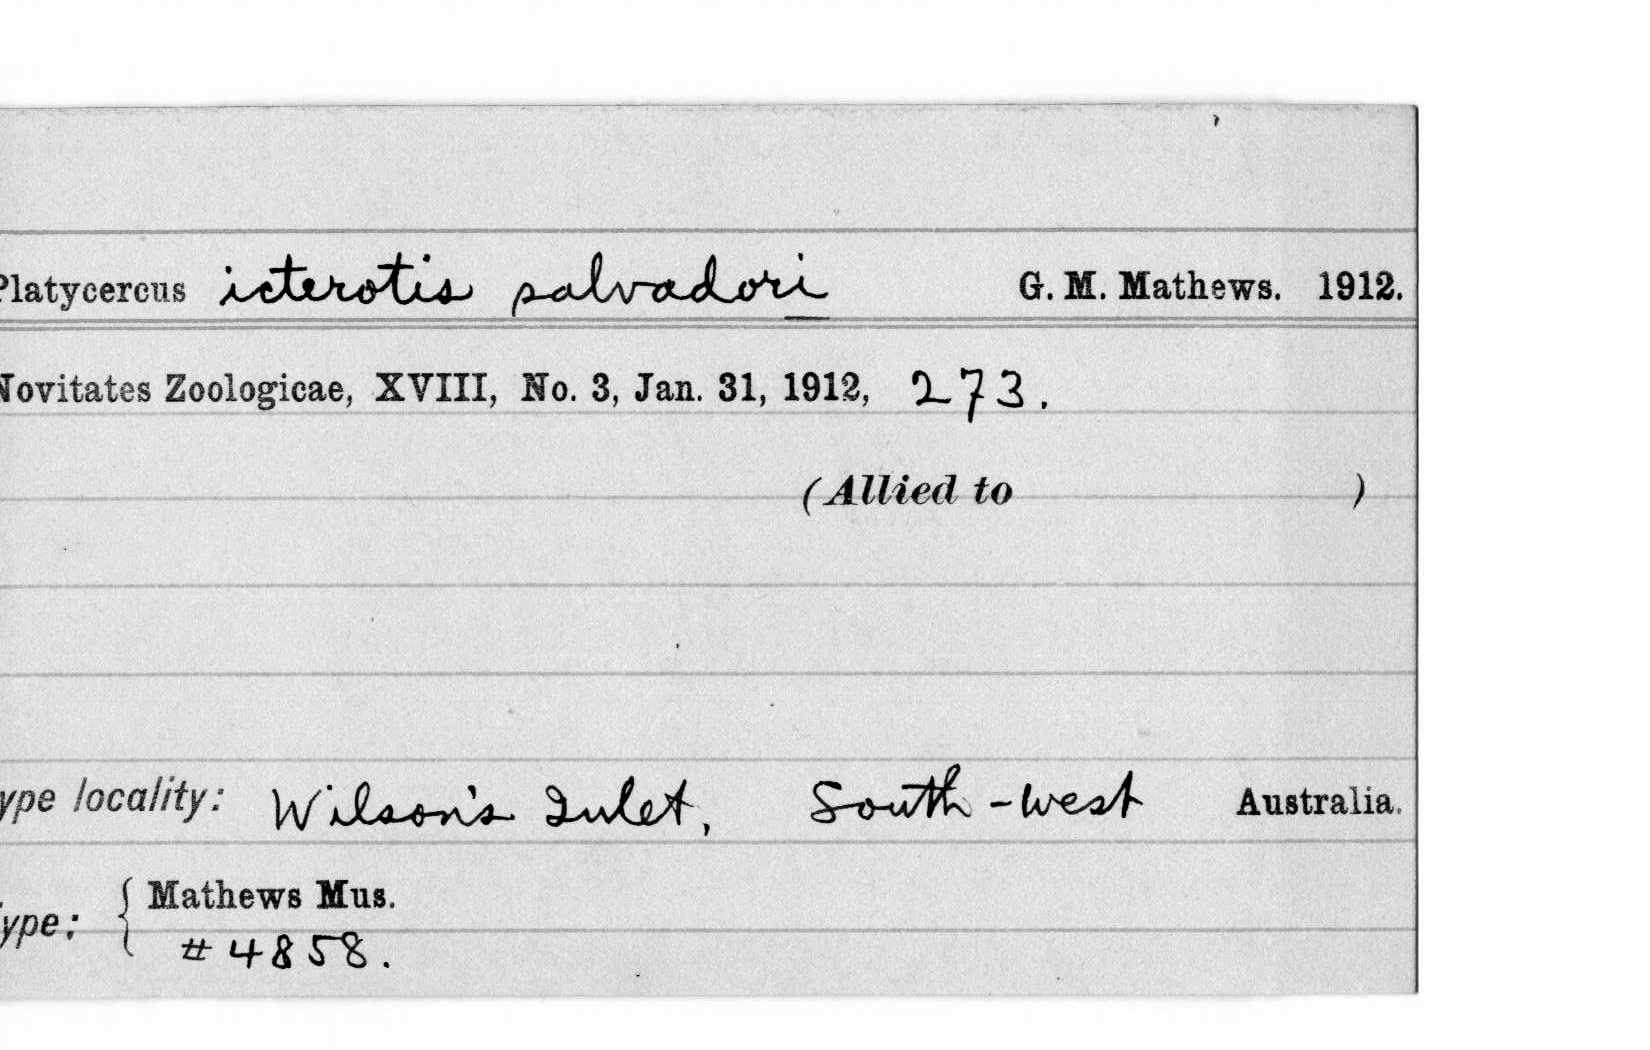 Platycercus icterotis salvadori G. M. Mathews. 1912.
Novitates Zoologicae, XVIII, No. 3, Jan. 31, 1912, 273.
(Allied to )
ype locality: Wilson's Inlet, South-west Australia.
ype: { Mathews Mus.
#4858.